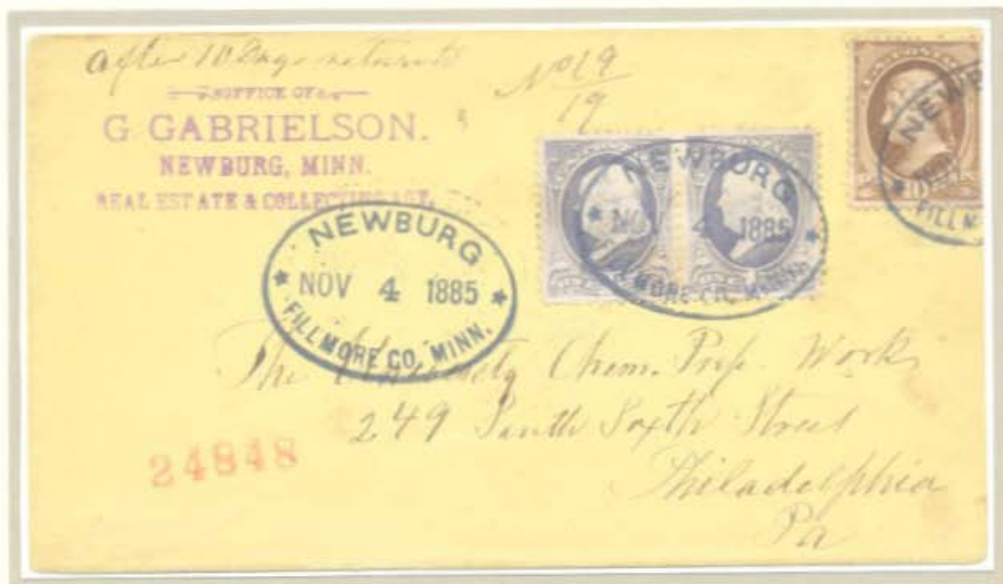 after 10 Days return to
No 19
19
OFFICE OF
G GABRIELSON.
NEWBURG, MINN.
REAL ESTATE & COLLECTING AGT.
NEWBURG
NOV 4 1885
FILLMORE CO. MINN.
NEWBURG
NO 4 1885
LMORE CO. MINN.
U.S. POSTA
NEWB
FILLM
The University Chem. Prep. Works
249 South Sixth Street
Philadelphia
Pa
24848